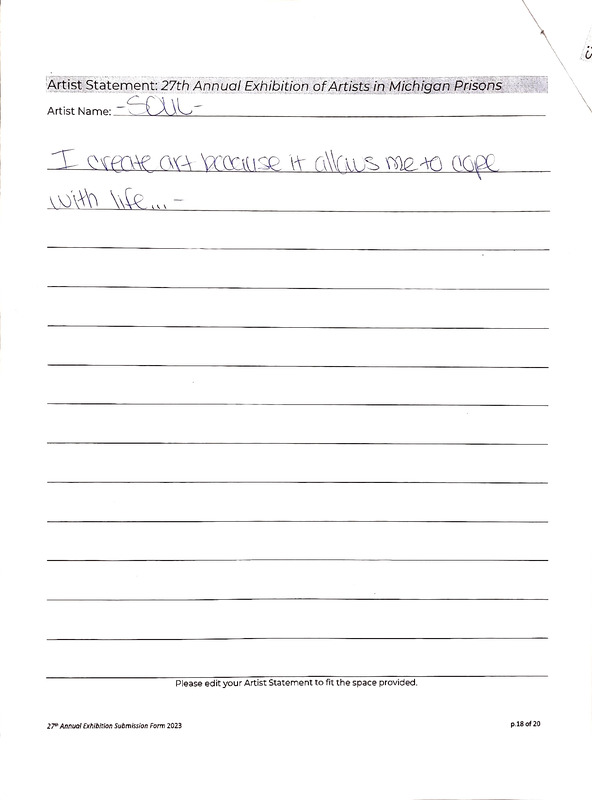 Artist Statement: 27th Annual Exhibition of Artists in Michigan Prisons
Artist Name: -SOUL-
I create art because it allows me to cope
with life...-
Please edit your Artist Statement to fit the space provided.
27th Annual Exhibition Submission Form 2023
p.18 of 20